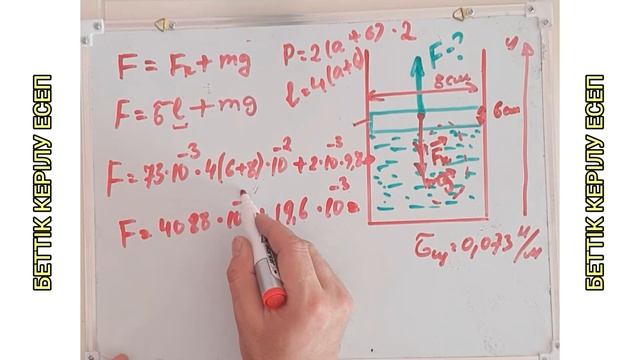 БЕТТІК КЕРІЛУ ЕСЕП
F = Fк + mg
P = 2(a + b) · 2
l = 4(a+b)
F = σl + mg
F = 73·10⁻³ · 4(6+8)·10⁻² + 2·10⁻³·9,8
F = 4088 · 10 19,6 · 10⁻³ =
F-?
8см
6см
Fк
mg
y
σсу = 0,073 Н/м
БЕТТІК КЕРІЛУ ЕСЕП